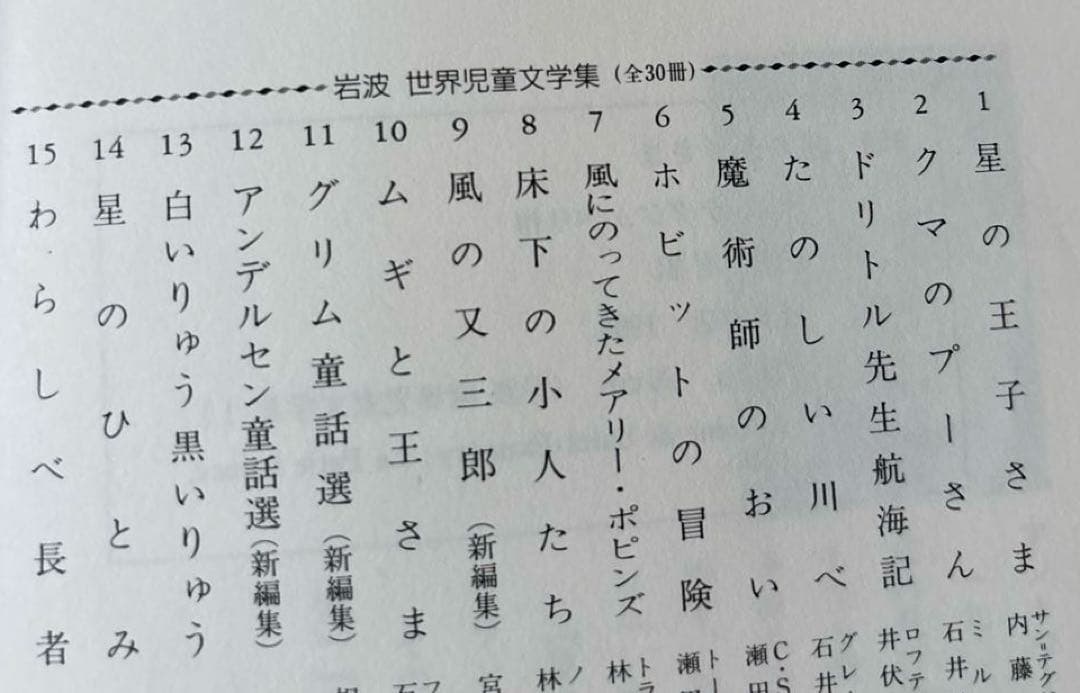 岩波 世界児童文学集 (全30冊)
1 星の王子さま サン=テグ 内藤
2 クマのプーさん ミル 石井
3 ドリトル先生航海記 ロフテ 井伏
4 たのしい川べ グレ 石井
5 魔術師のおい C・S 瀬田
6 ホビットの冒険 トー 瀬
7 風にのってきたメアリー・ポピンズ トラ 林
8 床下の小人たち ノ 林
9 風の又三郎(新編集) 宮
10 ムギと王さま フ 石
11 グリム童話選(新編集)
12 アンデルセン童話選(新編集)
13 白いりゅう黒いりゅう
14 星のひとみ
15 わらしべ長者